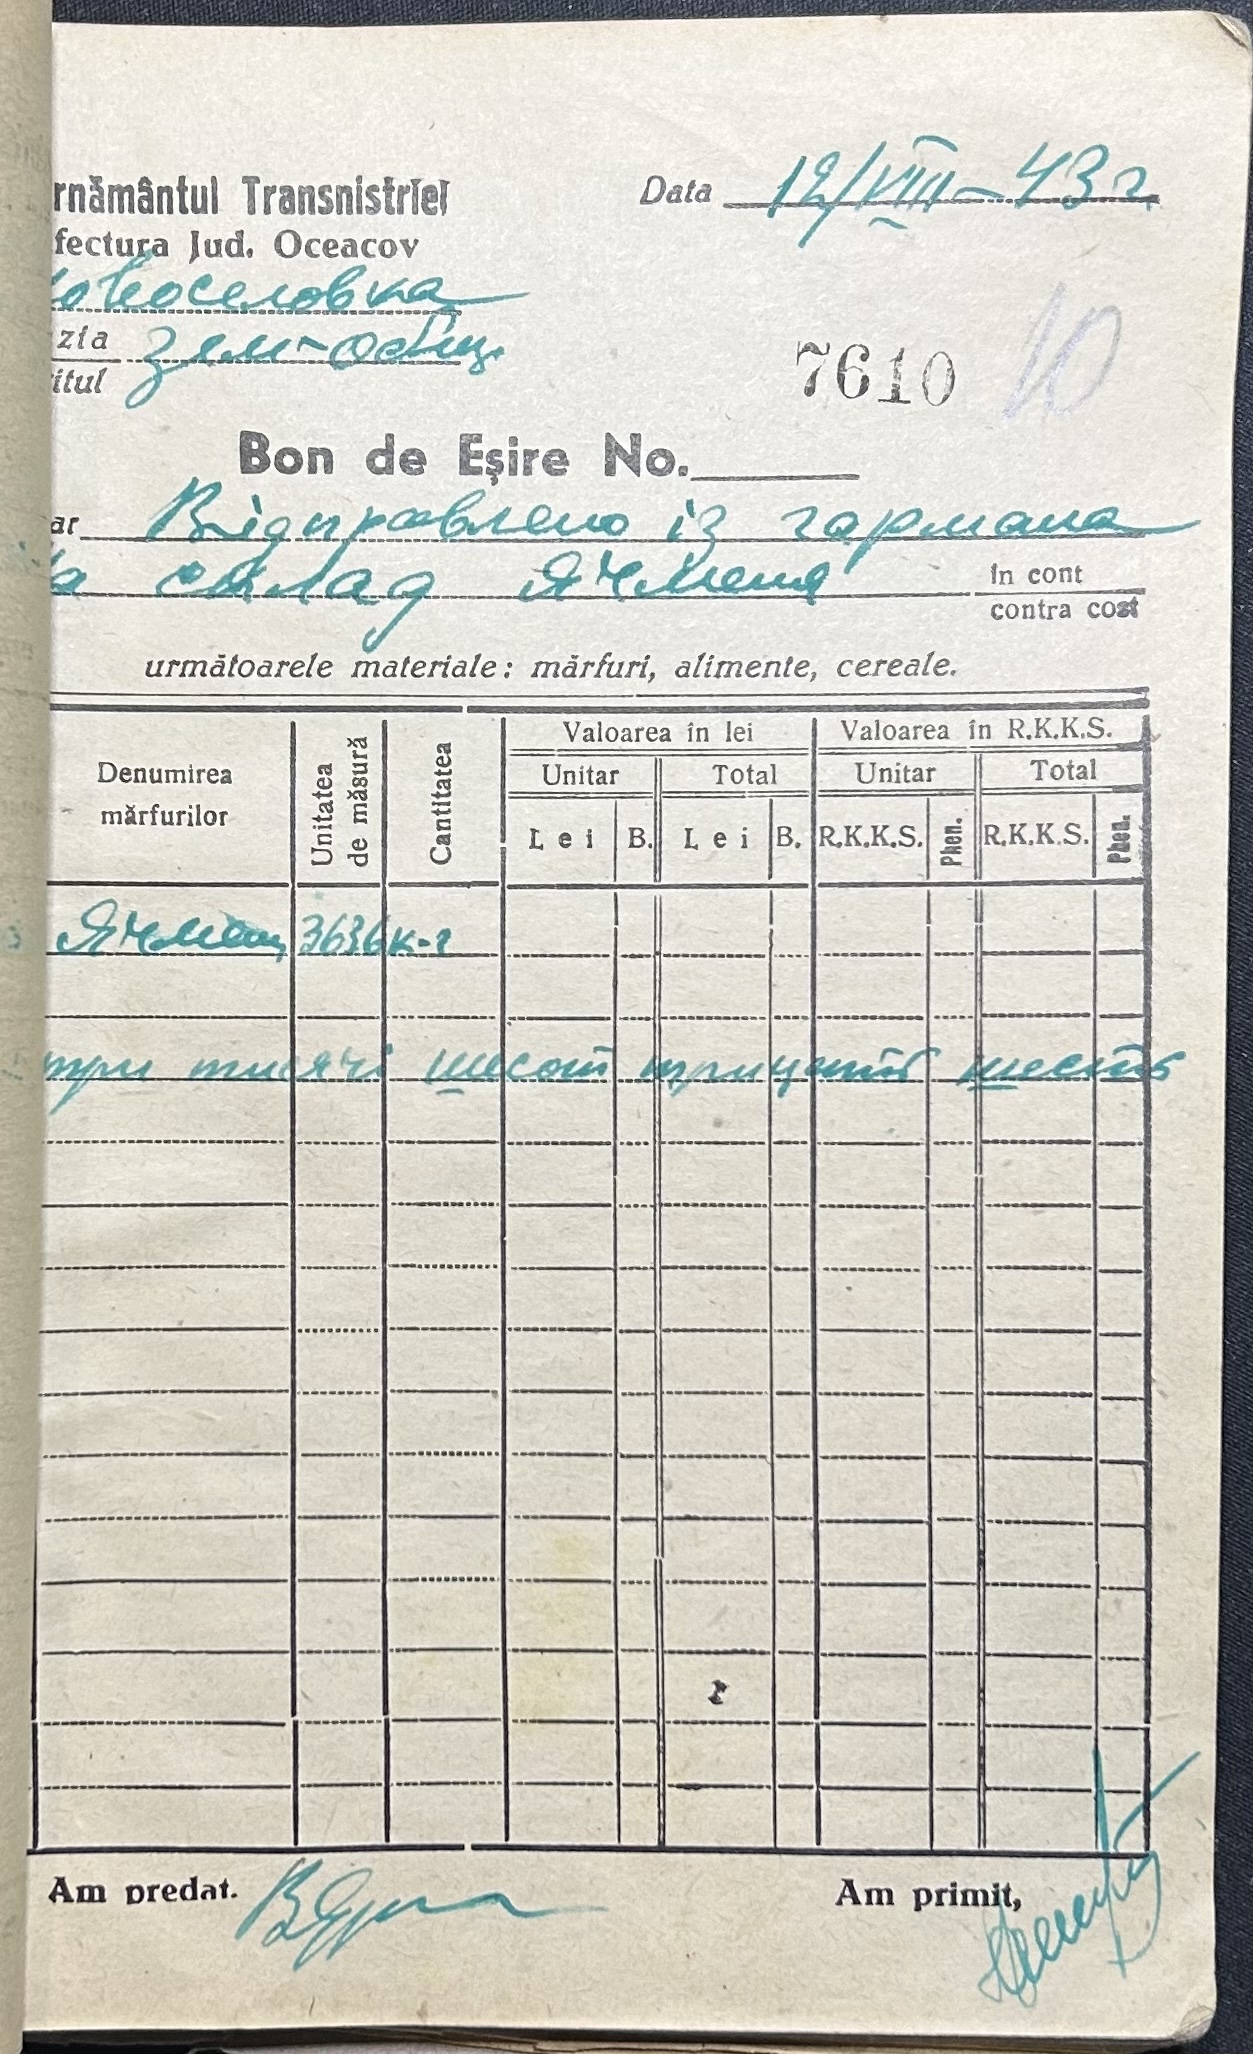 rnământul Transnistriei
Data 12/VIII-43 г
fectura Jud. Oceacov
овоселовка
zia зем-общ.
itul
7610 10
Bon de Eşire No.
ar Відправлено із гармана
на склад ячменя
în cont
contra cost
următoarele materiale: mărfuri, alimente, cereale.
Denumirea mărfurilor
Unitatea de măsură
Cantitatea
Valoarea în lei
Valoarea în R.K.K.S.
Unitar Total Unitar Total
Lei B. Lei B. R.K.K.S. Phen. R.K.K.S. Phen.
Ячмень 3636 к-г
три тисячі шесот трицять шесть
Am predat.
Am primit,